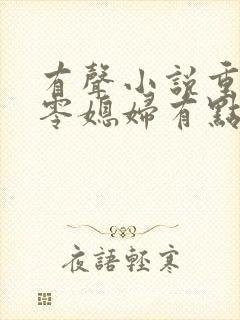 有聲小說重
零媳婦有點
夜語輕寒